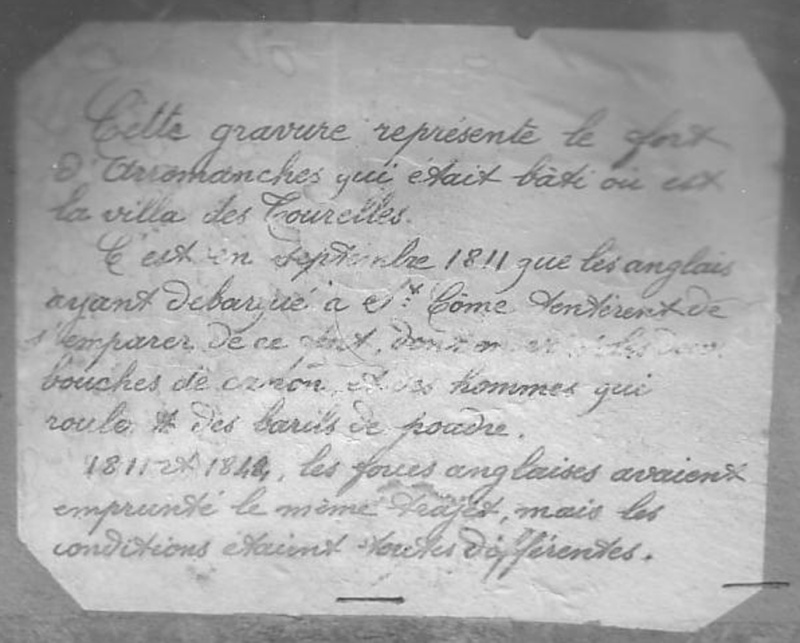 Cette gravure représente le fort
d'Arromanches qui était bâti où est
la villa des Tourelles.
C'est en septembre 1811 que les anglais
ayant debarqué à St. Côme tentèrent de
s'emparer de ce
bouches de canon, et des hommes qui
roulent des barils de poudre.
1811 et 1944, les forces anglaises avaient
emprunté le même trajet, mais les
conditions étaient toutes différentes.